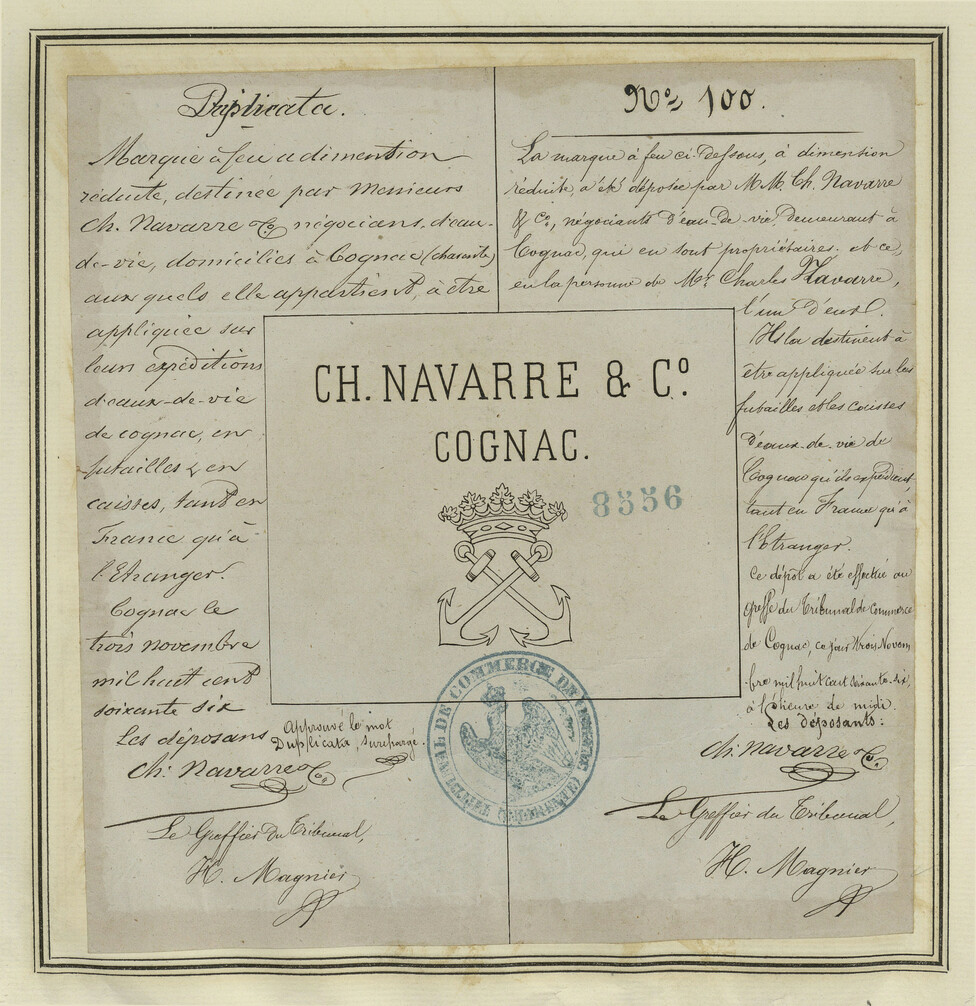 Duplicata.
Marque à feu a dimention
réduite, destinée par Messieurs
Ch. Navarre & Co. négocians, d'eau-
de-vie, domiciliés à Cognac (charente)
aux quels elle appartient, à être
appliquée sur
leurs expéditions
d'eaux-de-vie
de cognac, en
futailles & en
caisses, tant en
France qu'à
l'Etranger.
Cognac le
trois novembre
mil huit cent
soixante six
Les déposans
Approuvé le mot
Duplicata, surchargé.
Ch. Navarre & Co.
Le Greffier du Tribunal,
H. Magnier
No. 100.
La marque à feu ci-dessous, à dimension
réduite, a été déposée par M.M. Ch. Navarre
& Co., négociants d'eau-de-vie, demeurant à
Cognac, qui en sont propriétaires, et ce,
en la personne de Mr. Charles Navarre,
l'un d'eux.
Ils la destinent à
être appliquée sur les
futailles et les caisses
d'eaux-de-vie de
Cognac qu'ils expédient,
tant en France qu'à
l'Etranger.
Ce dépôt a été effectué au
greffe du Tribunal de Commerce
de Cognac, ce jour trois Novem
-bre mil huit cent soixante-six,
à l'heure de midi.
Les déposants:
Ch. Navarre & Co.
Le Greffier du Tribunal,
H. Magnier
CH. NAVARRE & Co.
COGNAC.
8556
TRIBUNAL DE COMMERCE DE COGNAC (CHARENTE)